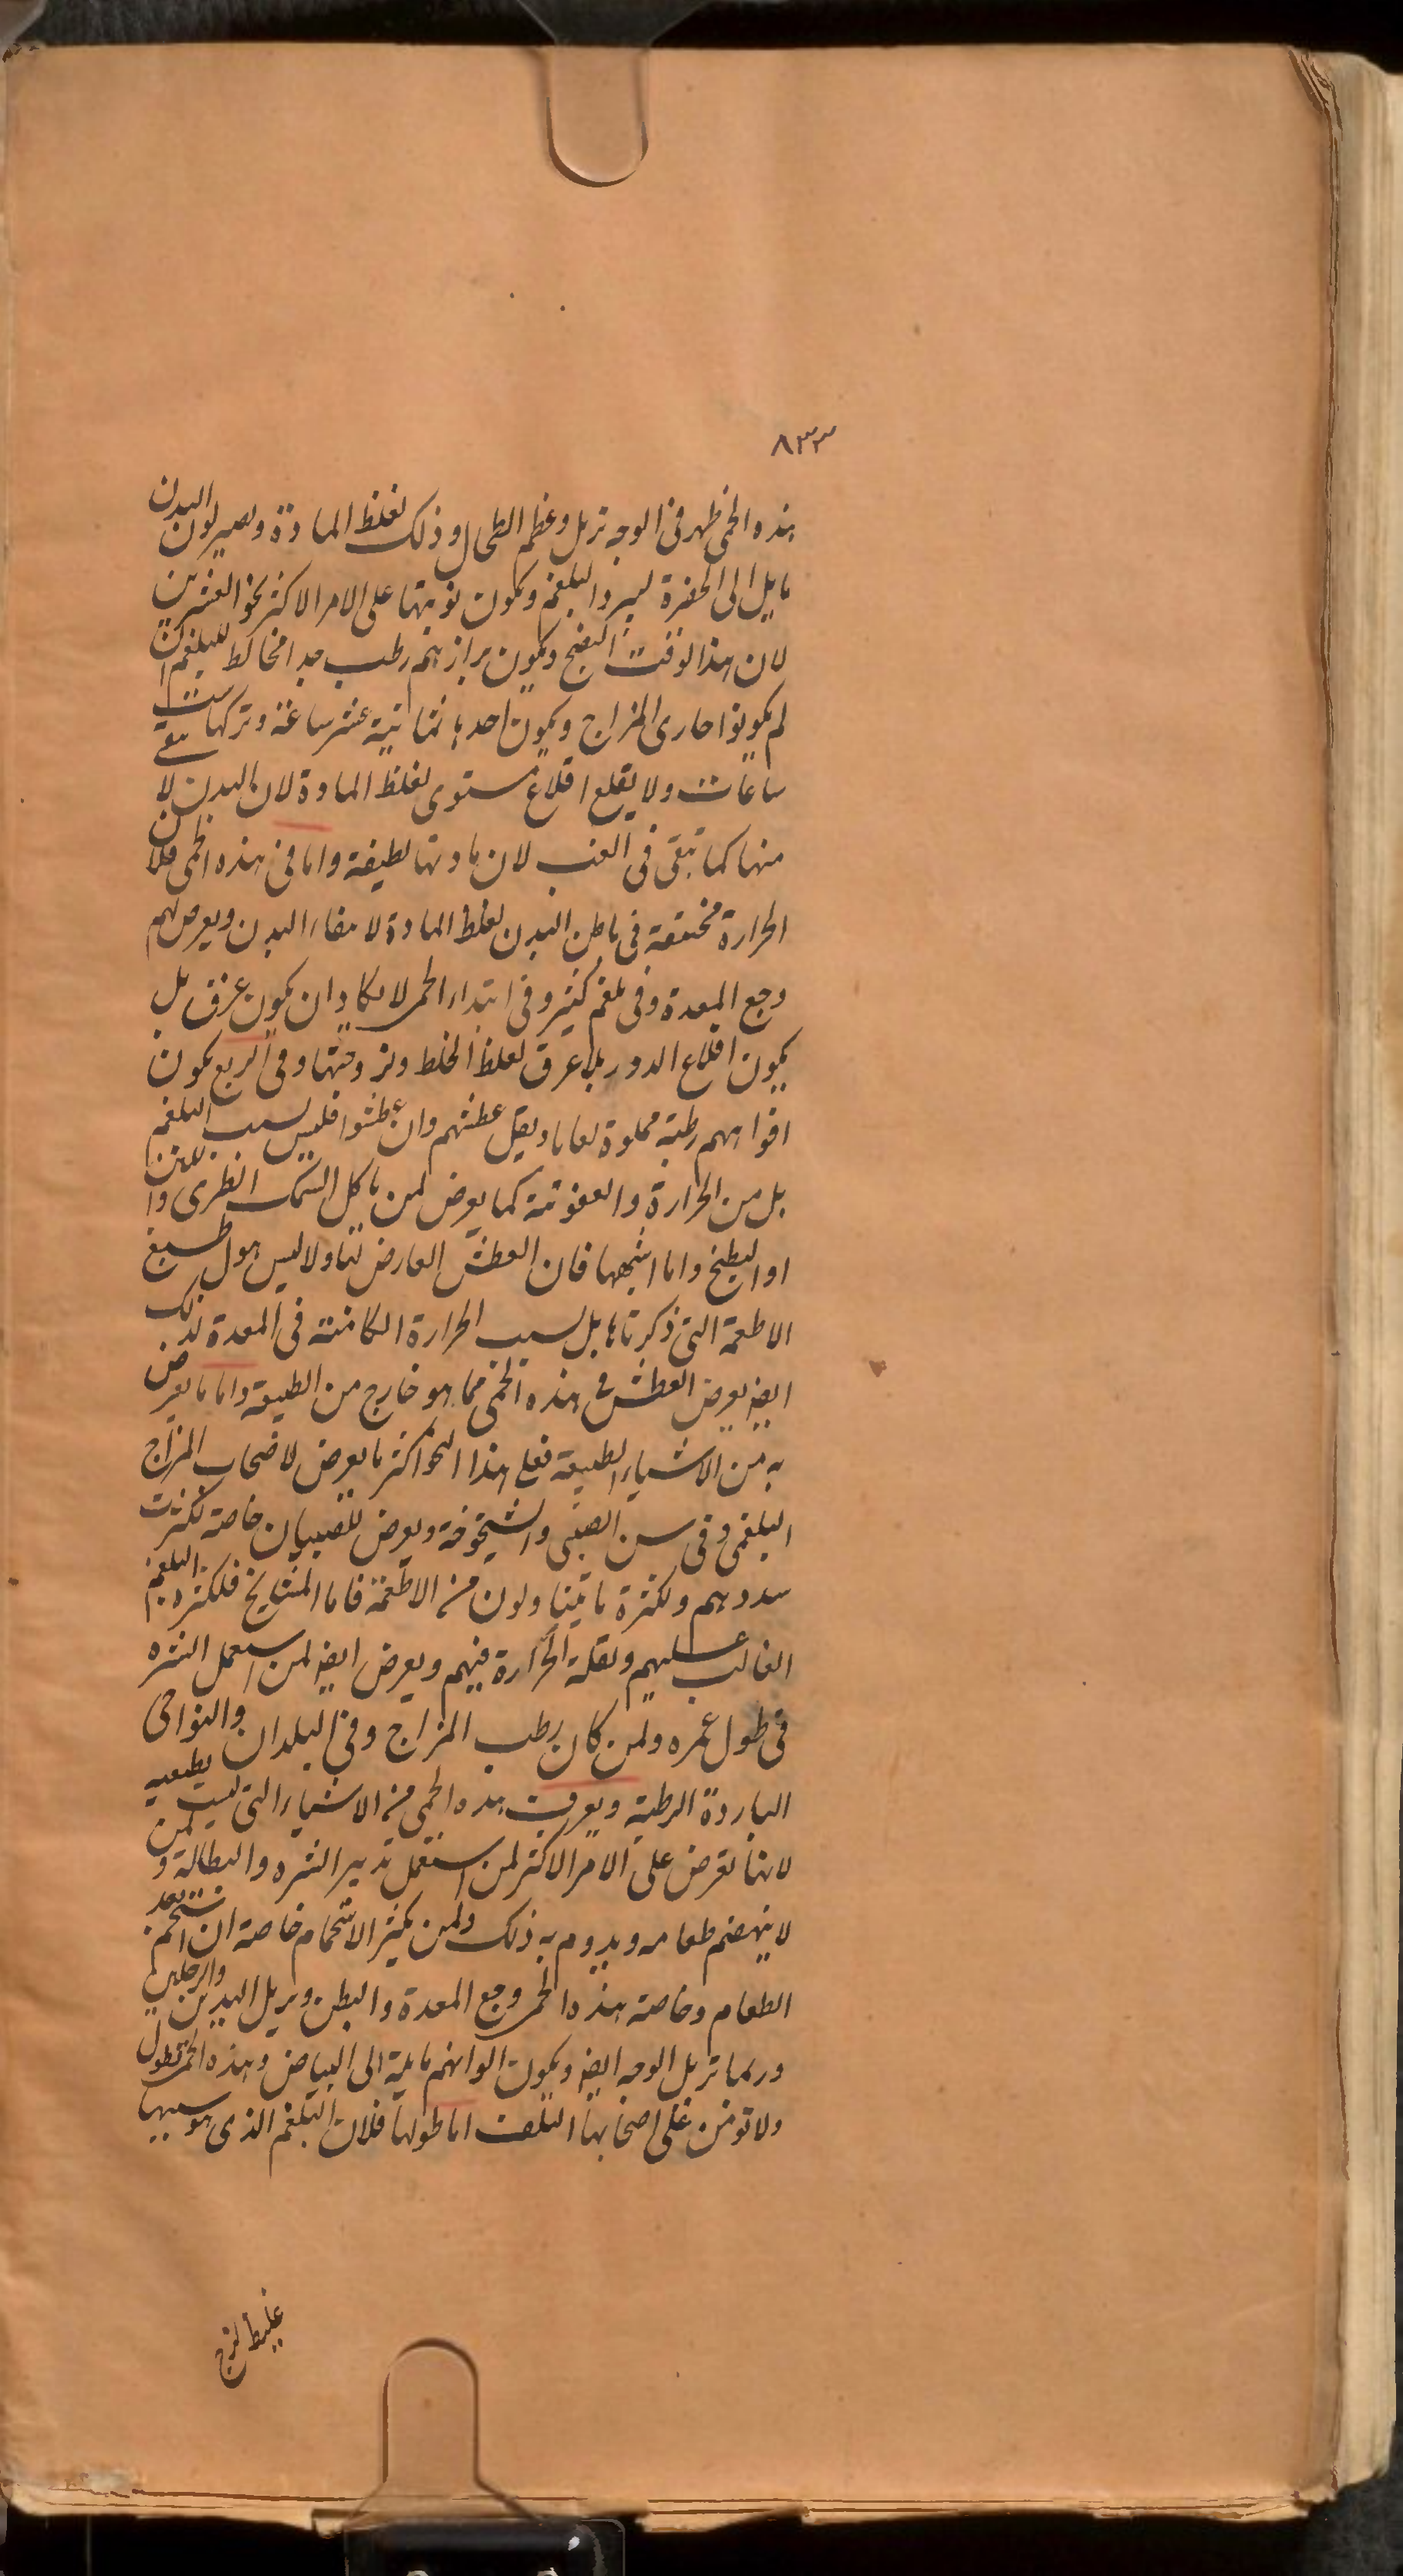 ٨٣٣
هذه الحمى ظهر فى الوجه تربل وعظم الطحال وذلك لغلظ المادة ويصير لون البدن
مايل الى الخضرة لبرد البلغم ويكون نوبتها على الامر الاكثر نحو العشرين
لان هذا لوقت النضج ويكون برازهم رطب جدا مخالط للبلغم ان
لم يكونوا حارى المزاج ويكون احدها ثمانية عشر ساعة وتركها ست
ساعات ولا يقلع اقلاع مستوى لغلظ المادة لان البدن لا ينقى
منها كما تنقى فى الغب لان مادتها لطيفة واما فى هذه الحمى فلان
الحرارة مختنقة فى باطن البدن لغلظ المادة لا ينقاء البدن ويعرض لهم
وجع المعدة وفى بلغم كثير وفى ابتداء الحمى لا يكاد ان يكون عرق بل
يكون اقلاع الدور بلا عرق لغلظ الخلط ولزوجتها وفى الربع يكون
افواههم رطبة مملوة لعابا ويقل عطشهم وان عطشوا فليس لسبب البلغم
بل من الحرارة والعفونة كما يعرض لمن ياكل السمك الطرى واللبن
او البطيخ واما اشبهها فان العطش العارض لتناولا ليس هو ل طبع
الاطعمة التى ذكرناها بل لسبب الحرارة الكامنة فى المعدة لذلك
ايضا يعرض العطش فى هذه الحمى مما هو خارج من الطبيعة واما ما يعرض
به من الاشياء الطبيعة فعلى هذا النحو اكثر ما يعرض لاصحاب المزاج
البلغمى وفى سن الصبى والشيخوخة ويعرض للصبيان خاصة لكثرت
سددهم ولكثرة ما يتناولون من الاطعمة فاما المشايخ فلكثرة البلغم
الغالب عليهم ولقلة الحرارة فيهم ويعرض ايضا لمن استعمل الشره
فى طول عمره ولمن كان رطب المزاج وفى البلدان والنواحى
الباردة الرطبة ويعرف هذه الحمى من الاشياء التى ليست بطبيعية
لانها تعرض على الامر الاكثر لمن استعمل تدبير الشره والبطالة ولمن
لا ينهضم طعامه ويدوم به ذلك ولمن يكثر الاستحمام خاصة ان استحم بعد
الطعام وخاصة هذه الحمى وجع المعدة والبطن وتربل اليدين والرجلين
وربما تربل الوجه ايضا ويكون الوانهم مايلة الى البياض وهذه الحمى تطول
ولا تومن على اصحابها التلف اما طولها فلان البلغم الذى هو سببها
غليظ لزج